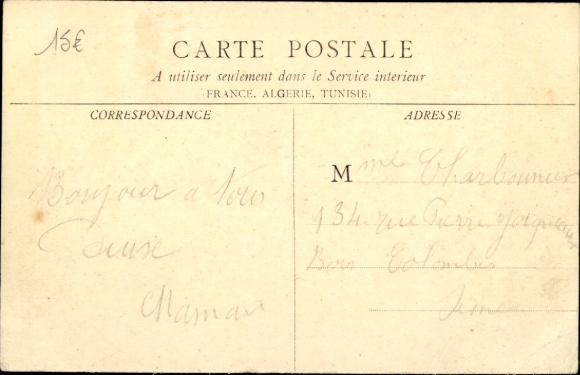 15€
CARTE POSTALE
A utiliser seulement dans le Service interieur
(FRANCE, ALGERIE, TUNISIE)
CORRESPONDANCE
ADRESSE
Bonjour a tous
Denise
Maman
Mme Charbonnier
134 rue Pierre Joigneaux
Bois Colombes
Seine